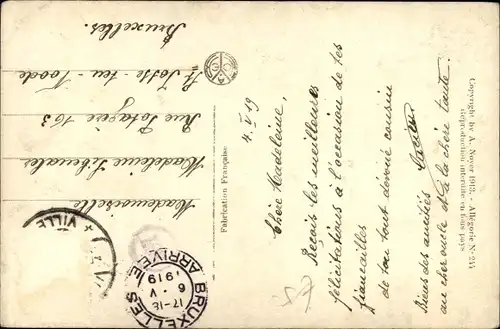 Copyright by A. Noyer 1912. - Allégorie N° 244
Reproduction interdite en tous pays
4. V 19
Chère Madeleine,
Reçois les meilleures
félicitations à l'occasion de tes
fiancailles
de ton tout dévoué cousin
Lucien
Mieux des amitiés
au cher oncle et à la chère tante.
Fabrication Française
Mademoiselle
Madeleine
Rue Potagère 163
St Josse-ten-Noode
Bruxelles.
VILLE
BRUXELLES
17-18
6 · V
1919
ARRIVÉE